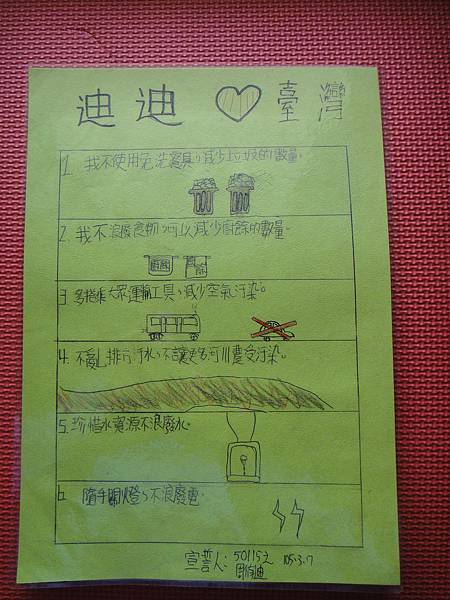 迪迪 ♡ 臺灣
1. 我不使用免洗餐具,減少垃圾的數量。
2. 我不浪廢食物,可以減少廚餘的數量。
廚餘
3. 多搭乘大眾運輸工具,減少空氣汙染。
4. 不亂排放汙水,不讓更多河川遭受污染。
5. 珍惜水資源不浪廢水。
6. 隨手關燈、不浪廢電。
宣誓人:50115之
105.3.7